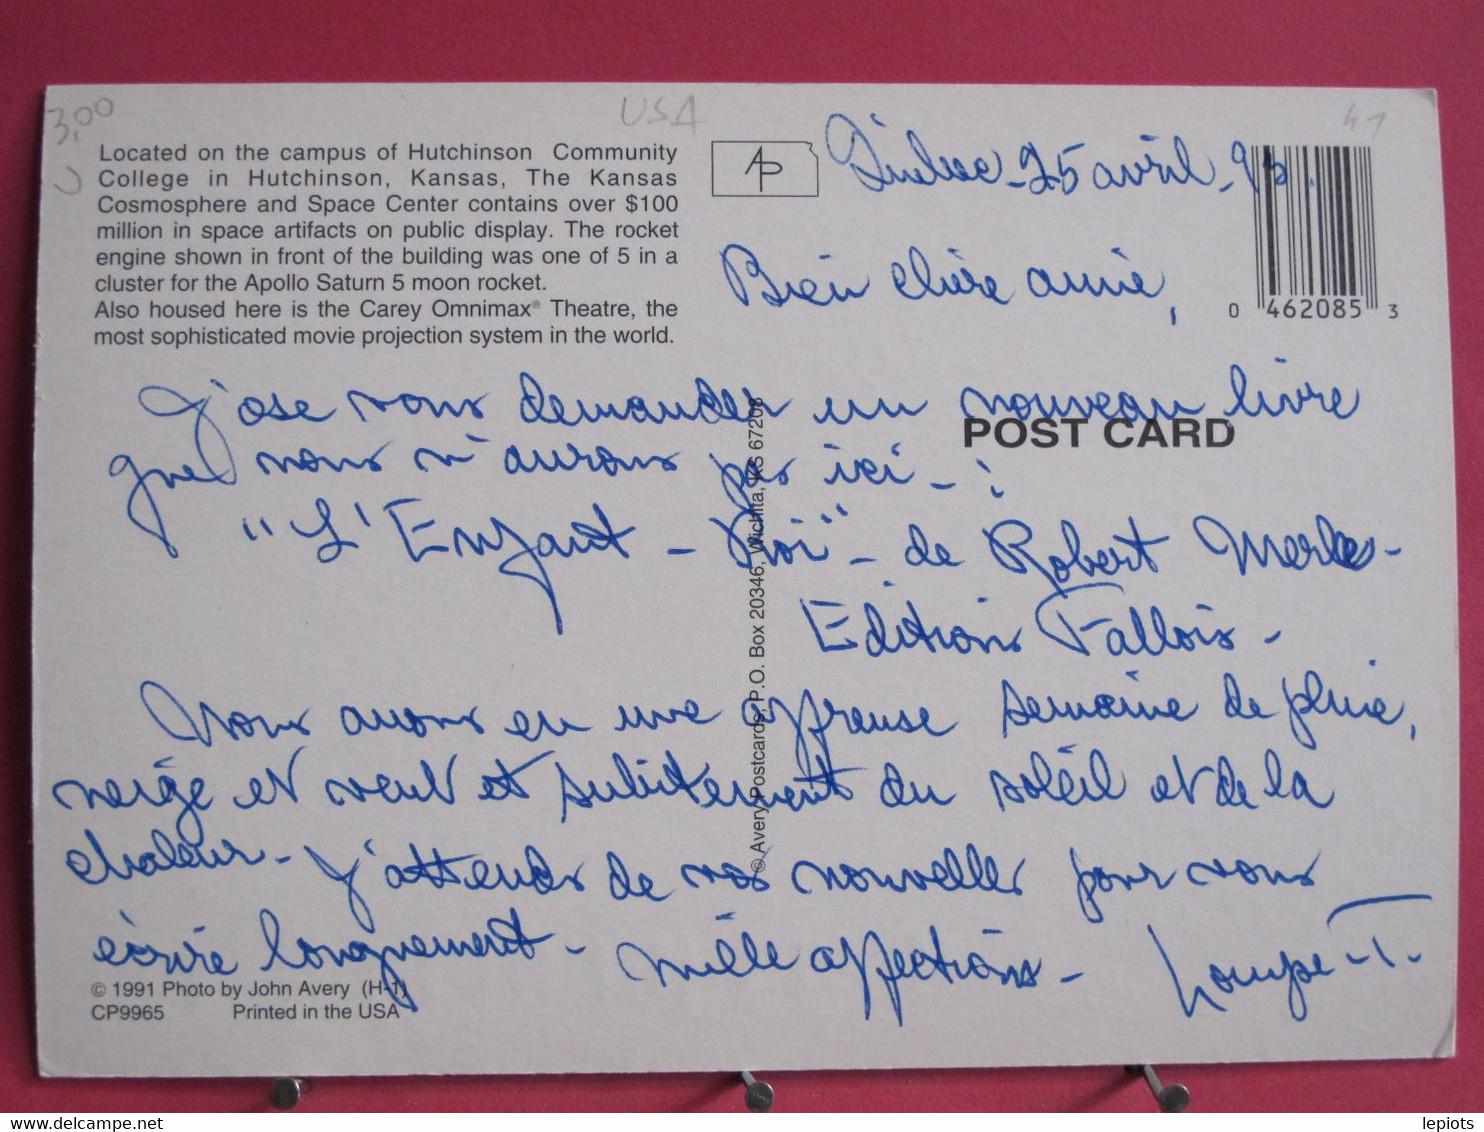 3,00
USA
41
Located on the campus of Hutchinson Community
College in Hutchinson, Kansas, The Kansas
Cosmosphere and Space Center contains over $100
million in space artifacts on public display. The rocket
engine shown in front of the building was one of 5 in a
cluster for the Apollo Saturn 5 moon rocket.
Also housed here is the Carey Omnimax® Theatre, the
most sophisticated movie projection system in the world.
AP
Québec - 25 avril - 93.
0 462085 3
Bien chère amie,
J'ose vous demander un nouveau livre
que nous n'aurons pas ici - :
"L'Enfant - Roi" - de Robert Merle -
Editions Fallois -
POST CARD
© Avery Postcards, P.O. Box 20346, Wichita, KS 67208
Nous avons eu une affreuse semaine de pluie,
neige et vent et subitement du soleil et de la
chaleur - J'attends de vos nouvelles pour vous
écrire longuement - mille affections -
© 1991 Photo by John Avery (H-1)
CP9965 Printed in the USA
delcampe.net
lepiots